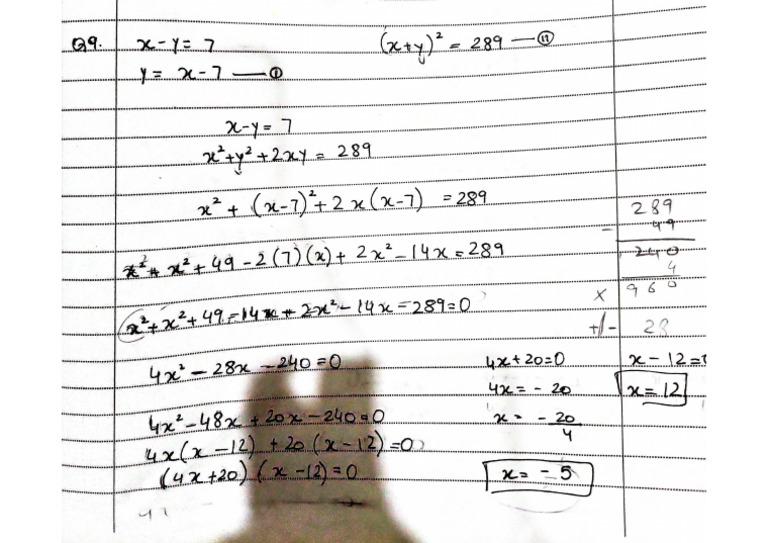 Q9. x-y=7 (x+y)² = 289 — ⑪
y= x-7 — ①
x-y=7
x²+y²+2xy = 289
x² + (x-7)²+2x(x-7) =289
x²+ x²+49-2(7)(x)+ 2x²-14x=289
x²+x²+49-14x+2x²-14x-289=0
4x²-28x-240=0
4x²-48x+20x-240=0
4x(x-12)+20(x-12)=0
(4x+20)(x-12)=0
4x+20=0
4x=-20
x= -20/4
x= -5
289
- 49
240
x 4
960
+/- 28
x-12=0
x=12